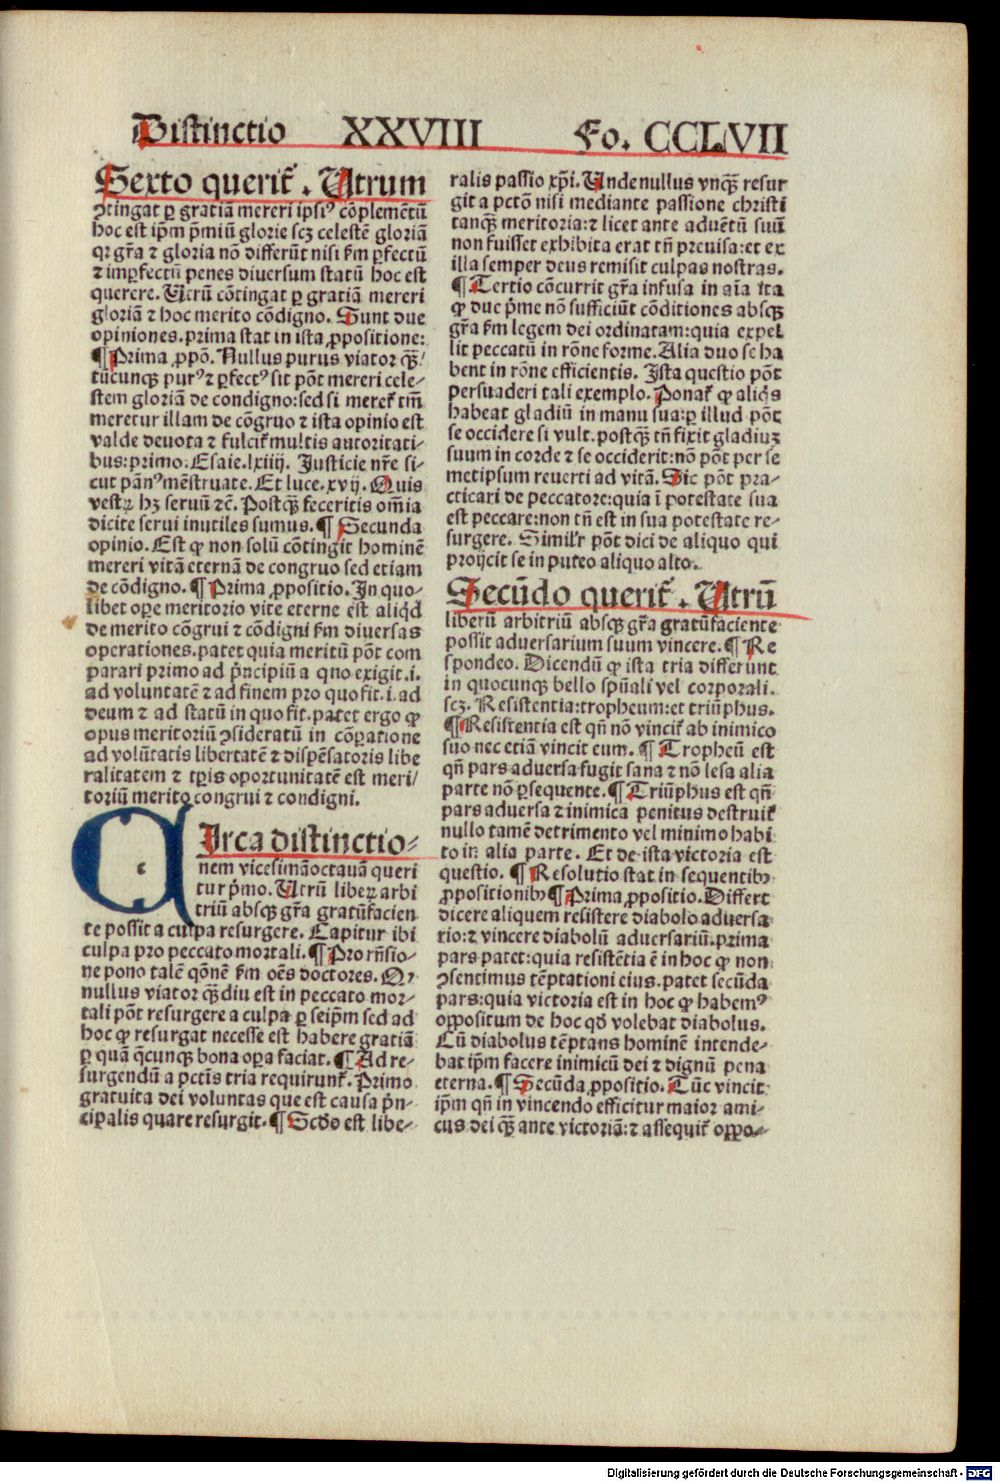 Distinctio XXVIII Fo. CCLVII
Sexto querit᷑. Utrum
ꝯtingat ꝑ gratiā mereri ipsiꝰ cōplemētū
hoc est ip̄m p̄miū glorie scꝫ celestē gloriā
qꝛ gr̄a ⁊ gloria nō differūt nisi ẜm ꝑfectū
⁊ imꝑfectū penes diuersum statū hoc est
querere. Utrū cōtingat ꝑ gratiā mereri
gloriā ⁊ hoc merito cōdigno. Sunt due
opiniones. prima stat in ista ꝓpositione:
¶ Prima ꝓpō. Nullus purus viator qȝ̄/
tūcunqꝫ purꝰ ⁊ ꝑfectꝰ sit pōt mereri cele-
stem gloriā de condigno: sed si meret᷑ tm̄
meretur illam de cōgruo ⁊ ista opinio est
valde deuota ⁊ fulcit᷑ multis autoritati-
bus: primo: Esaie. lxiiij. Justicie nr̄e si-
cut pānꝰ mēstruate. Et luce. xvij. Quis
vestꝝ hꝫ seruū ⁊c̄. Postqȝ̄ feceritis om̄ia
dicite serui inutiles sumus. ¶ Secunda
opinio. Est ꝙ non solū cōtingit hominē
mereri vitā eternā de congruo sed etiam
de cōdigno. ¶ Prima ꝓpositio. In quo-
libet oꝑe meritorio vite eterne est aliqd̓
de merito cōgrui ⁊ cōdigni ẜm diuersas
operationes. patet quia meritū pōt com
parari primo ad p̓ncipiū a quo exigit. i.
ad voluntatē ⁊ ad finem pro quo fit. i. ad
deum ⁊ ad statū in quo fit. patet ergo ꝙ
opus meritoriū ꝯsideratū in cōꝑatione
ad volūtatis libertatē ⁊ dispēsatoris libe
ralitatem ⁊ tꝑis oportunitatē est meri/
toriū merito congrui ⁊ condigni.
Circa distinctio-
nem vicesimāoctauā queri
tur p̓mo. Utrū libeꝝ arbi
triū absqꝫ gr̄a gratūfacien
te possit a culpa resurgere. Capitur ibi
culpa pro peccato mortali. ¶ Pro rn̄sio-
ne pono talē qōnē ẜm oēs doctores. Qꝛ
nullus viator qȝ̄diu est in peccato mor-
tali pōt resurgere a culpa ꝑ seip̄m sed ad
hoc ꝙ resurgat necesse est habere gratiā
ꝑ quā q̄cunqꝫ bona oꝑa faciat. ¶ Ad re-
surgendū a pctīs tria requirunt᷑. Primo
gratuita dei voluntas que est causa p̓n-
cipalis quare resurgit. ¶ Scd̓o est libe-
ralis passio xp̄i. Unde nullus vnqȝ̄ resur
git a pctō nisi mediante passione christi
tanqȝ̄ meritoria: ⁊ licet ante aduētū suū
non fuisset exhibita erat tn̄ preuisa: et ex
illa semper deus remisit culpas nostras.
¶ Tertio cōcurrit gr̄a infusa in aīa ita
ꝙ due p̓me nō sufficiūt cōditiones absqꝫ
gr̄a ẜm legem dei ordinatam: quia expel
lit peccatū in rōne forme. Alia duo se ha
bent in rōne efficientis. Ista questio pōt
persuaderi tali exemplo. Ponat᷑ ꝙ aliq̓s
habeat gladiū in manu sua: ꝑ illud pōt
se occidere si vult. postqȝ̄ tn̄ fixit gladiuꝫ
suum in corde ⁊ se occiderit: nō pōt per se
metipsum reuerti ad vitā. Sic pōt pra-
cticari de peccatore: quia ī potestate sua
est peccare: non tn̄ est in sua potestate re-
surgere. Simil'r pōt dici de aliquo qui
proijcit se in puteo aliquo alto.
Secūdo querit᷑. Utrū
liberū arbitriū absqꝫ gr̄a gratūfaciente
possit aduersarium suum vincere. ¶ Re
spondeo. Dicendū ꝙ ista tria differunt
in quocunqꝫ bello spūali vel corporali.
scꝫ. Resistentia: tropheum: et triūphus.
¶ Resistentia est qn̄ nō vincit᷑ ab inimico
suo nec etiā vincit eum. ¶ Tropheū est
qn̄ pars aduersa fugit sana ⁊ nō lesa alia
parte nō ꝑsequente. ¶ Triūphus est qn̄
pars aduersa ⁊ inimica penitus destruit᷑
nullo tamē detrimento vel minimo habi
to in alia parte. Et de ista victoria est
questio. ¶ Resolutio stat in sequentibꝫ
ꝓpositionibꝫ ¶ Prima ꝓpositio. Differt
dicere aliquem resistere diabolo aduersa
rio: ⁊ vincere diabolū aduersariū. prima
pars patet: quia resistētia ē in hoc ꝙ non
ꝯsentimus tēptationi eius. patet secūda
pars: quia victoria est in hoc ꝙ habemꝰ
oppositum de hoc qd̓ volebat diabolus.
Cū diabolus tēptans hominē intende-
bat ip̄m facere inimicū dei ⁊ dignū pena
eterna. ¶ Secūda ꝓpositio. Tūc vincit
ip̄m qn̄ in vincendo efficitur maior ami-
cus dei qȝ̄ ante victoriā: ⁊ assequit᷑ oppo-
Digitalisierung gefördert durch die Deutsche Forschungsgemeinschaft - DFG